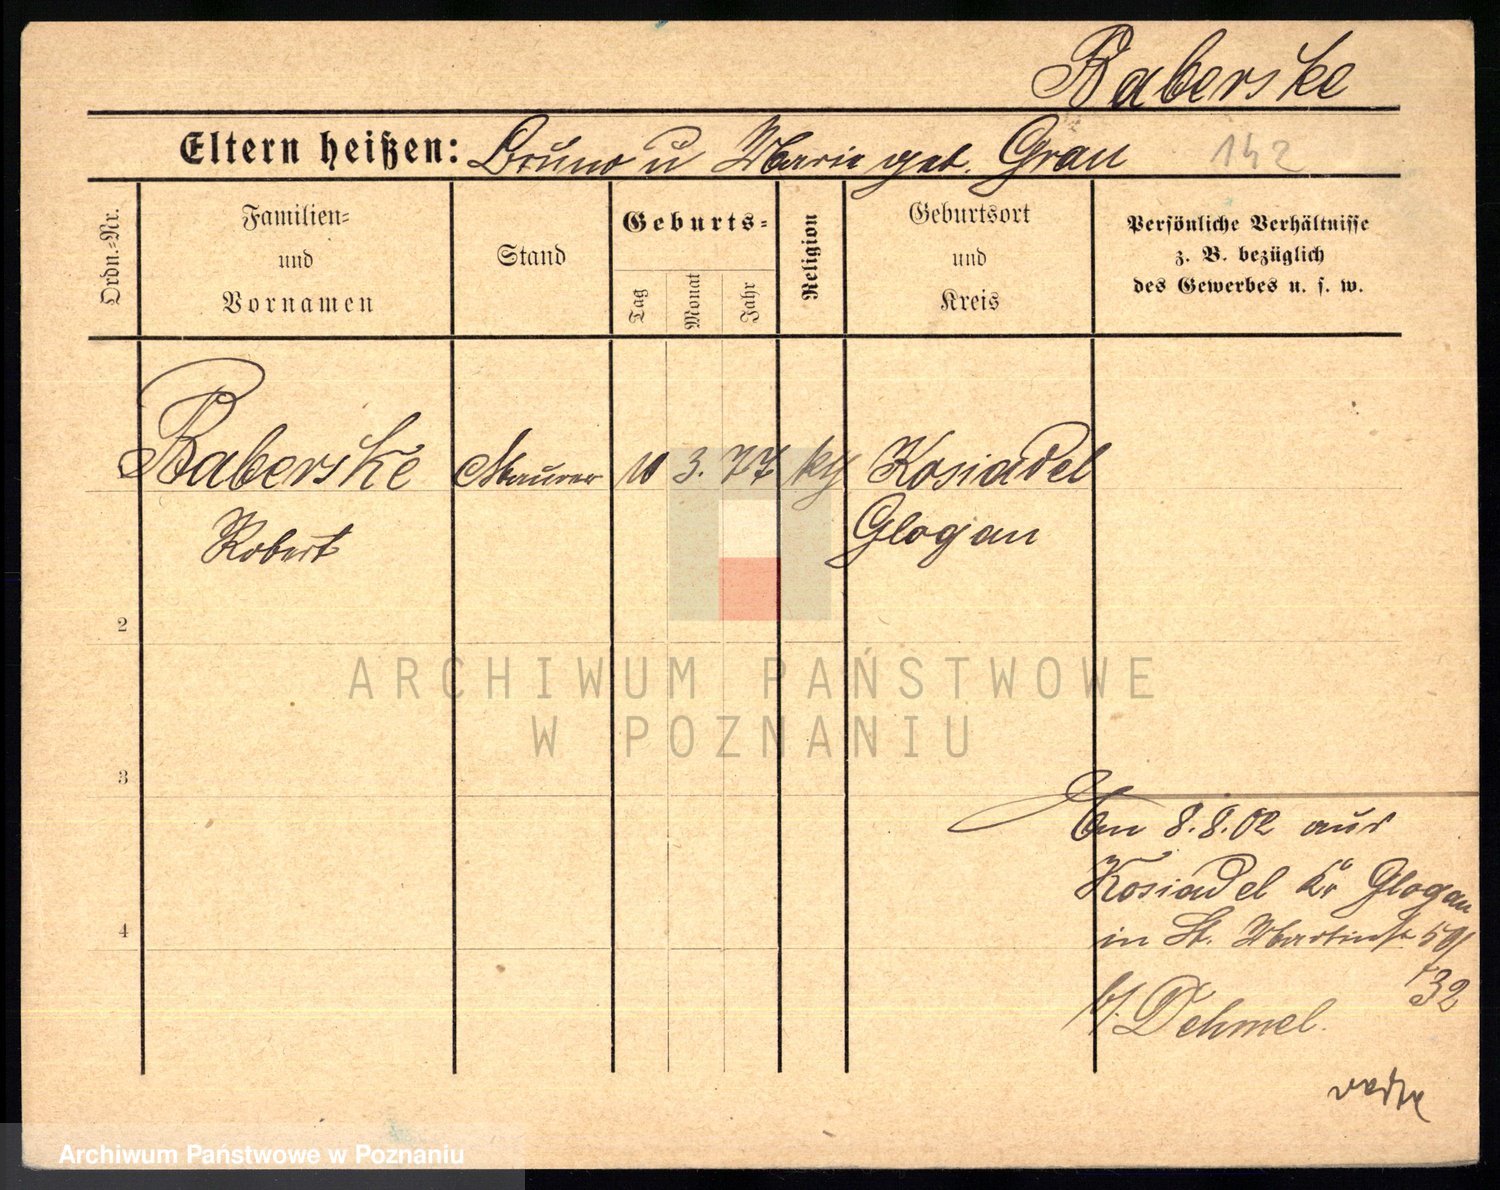 Raberske
Eltern heißen: Bruno u Marie geb. Grau 142
Ordn.=Nr.
Familien=
und
Vornamen
Stand
Geburts=
Tag
Monat
Jahr
Religion
Geburtsort
und
Kreis
Persönliche Verhältnisse
z. B. bezüglich
des Gewerbes u. s. w.
Raberske Maurer 10 3. 77 Kosiadel
Robert Glogau
2
3
4
Am 8.8.02 aus
Kosiadel Kr Glogau
in St. Martinstr 59/
32
b/ Dehmel.
ARCHIWUM PAŃSTWOWE
W POZNANIU
Archiwum Państwowe w Poznaniu